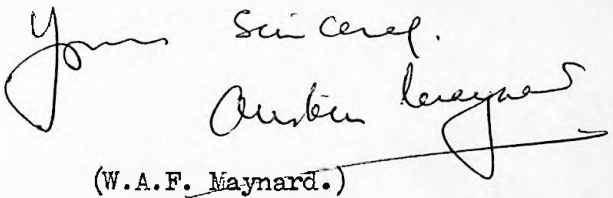 Yours Sincerely.
Austin Maynard
(W.A.F. Maynard.)